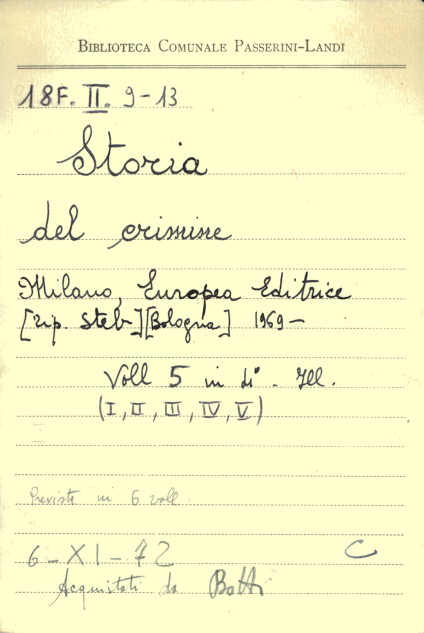 BIBLIOTECA COMUNALE PASSERINI-LANDI
18F. II. 9-13
Storia
del crimine
Milano, Europea Editrice
[tip. Steb][Bologna] 1969-
Voll 5 in 4°. Ill.
(I, II, III, IV, V)
Previste in 6 voll
6-XI-72 C
Acquistati da Botti